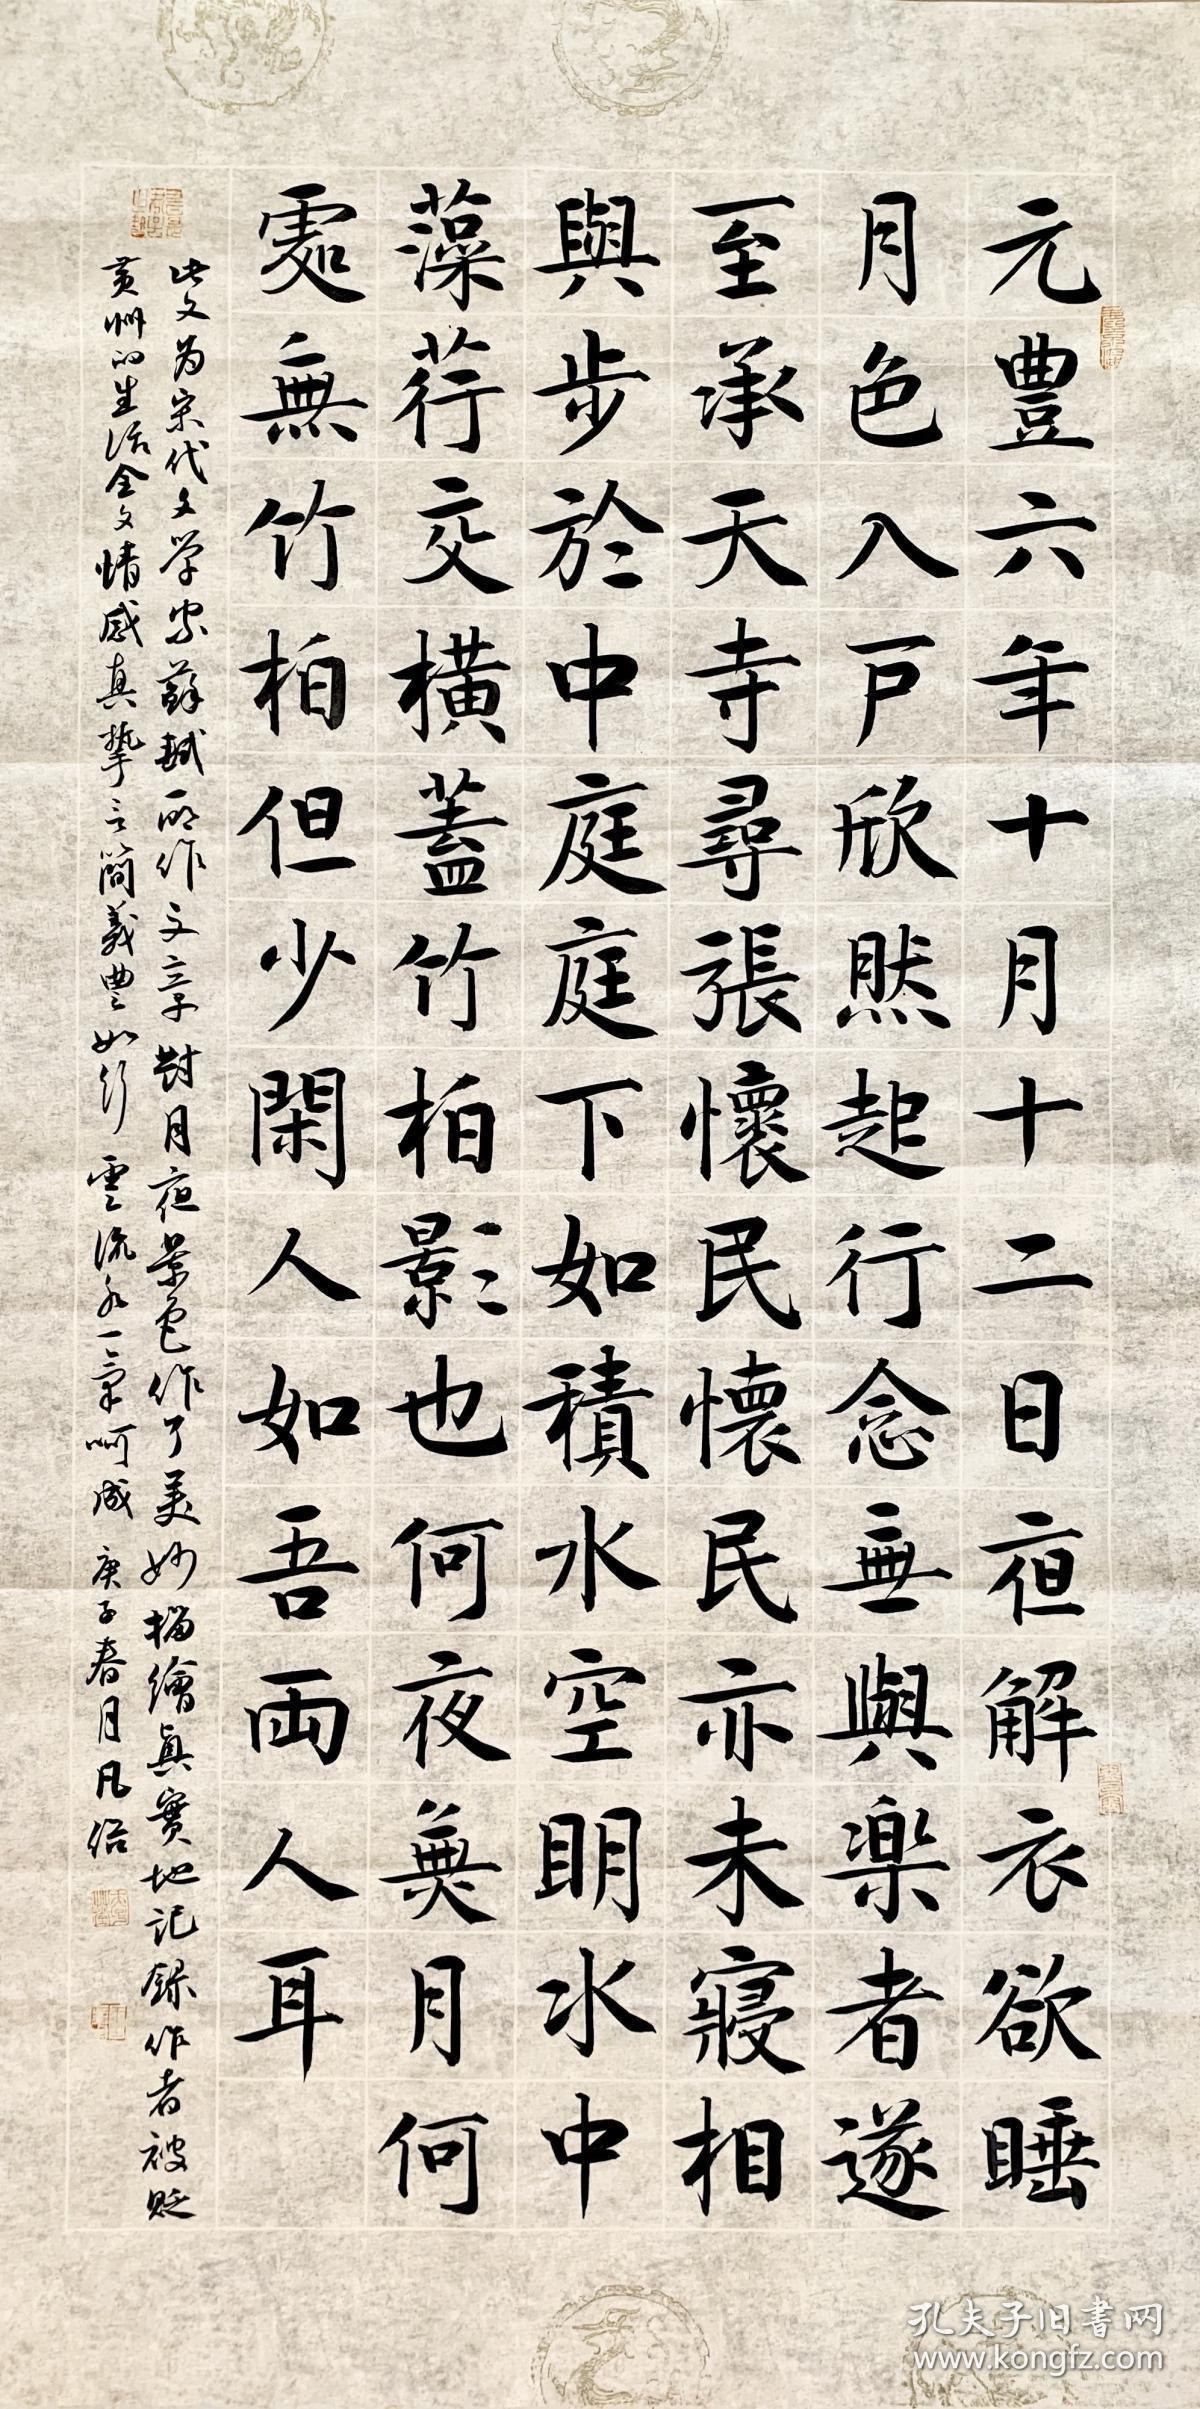 元豐六年十月十二日夜解衣欲睡
月色入戶欣然起行念無與樂者遂
至承天寺尋張懷民懷民亦未寢相
與步於中庭庭下如積水空明水中
藻荇交橫蓋竹柏影也何夜無月何
處無竹柏但少閑人如吾兩人耳
此文为宋代文学家蘇軾所作文章對月夜景色作了美妙描繪真實地記錄作者被贬
黄州的生活全文情感真摯言簡義豐如行雲流水一氣呵成 庚子春月凡俗
孔夫子旧書网
www.kongfz.com